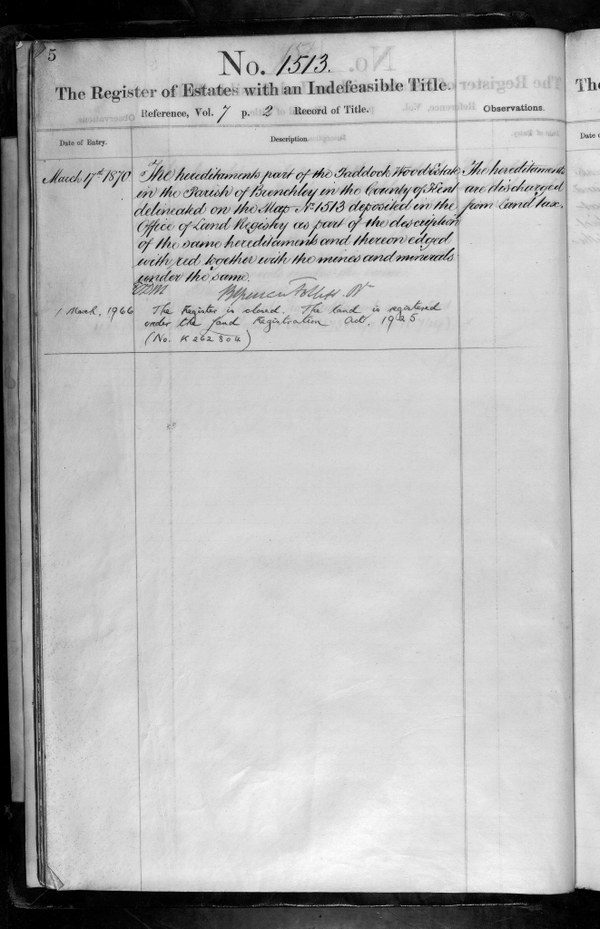 5
No. 1513.
The Register of Estates with an Indefeasible Title.
Reference, Vol. 7 p. 2 Record of Title.
Observations.
Date of Entry.
Description.
March 17th 1870
The hereditaments part of the Paddock Wood Estate
in the Parish of Brenchley in the County of Kent
delineated on the Map No 1513 deposited in the
Office of Land Registry as part of the description
of the same hereditaments and thereon edged
with red together with the mines and minerals
under the same.
The hereditaments
are discharged
from Land tax.
Follett
1 March, 1966
The Register is closed. The land is registered
under the Land Registration Act, 1925
(No. K262304)
The
Date o